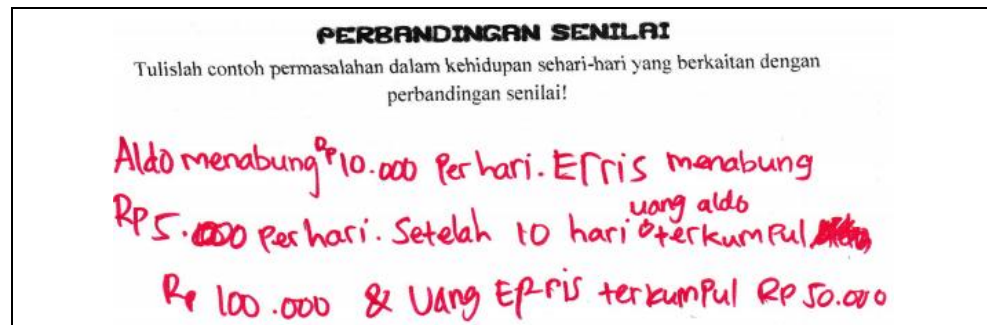 PERBANDINGAN SENILAI
Tulislah contoh permasalahan dalam kehidupan sehari-hari yang berkaitan dengan
perbandingan senilai!
Aldo menabung Rp 10.000 Perhari. Efris menabung
Rp 5.000 perhari. Setelah 10 hari uang aldo terkumpul
Rp 100.000 & Uang Efris terkumpul Rp 50.000